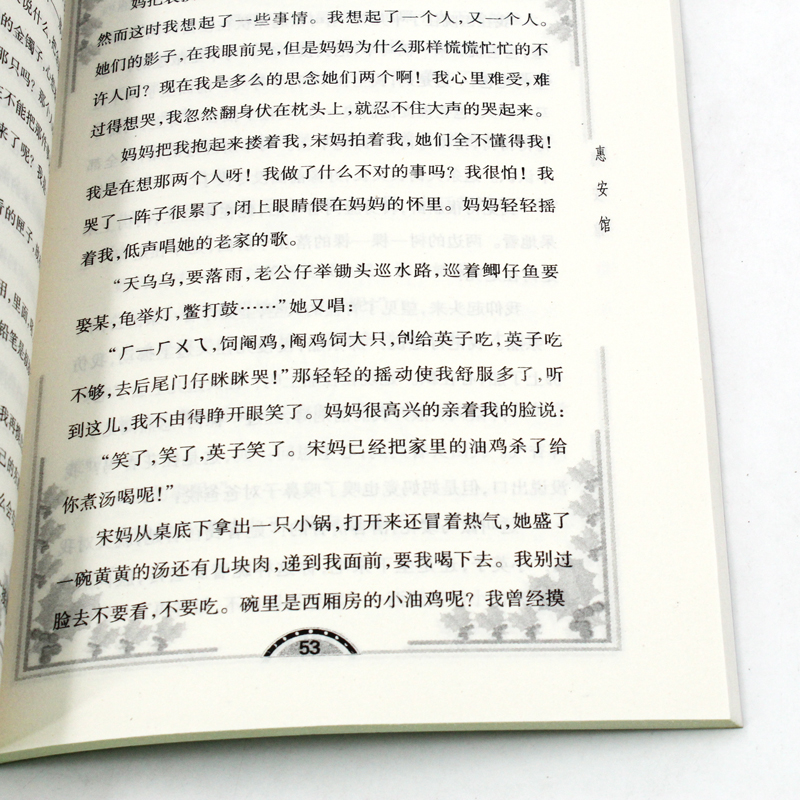 然而这时我想起了一些事情。我想起了一个人，又一个人。
她们的影子，在我眼前晃，但是妈妈为什么那样慌慌忙忙的不
许人问？现在我是多么的思念她们两个啊！我心里难受，难
过得想哭，我忽然翻身伏在枕头上，就忍不住大声的哭起来。
妈妈把我抱起来搂着我，宋妈拍着我，她们全不懂得我！
我是在想那两个人呀！我做了什么不对的事吗？我很怕！我
哭了一阵子很累了，闭上眼睛偎在妈妈的怀里。妈妈轻轻摇
着我，低声唱她的老家的歌。
“天乌乌，要落雨，老公仔举锄头巡水路，巡着鲫仔鱼要
娶某，龟举灯，鳖打鼓……”她又唱：
“ㄏㄧㄏㄨㄟ，饲阉鸡，阉鸡饲大只，刣给英子吃，英子吃
不够，去后尾门仔眯眯哭！”那轻轻的摇动使我舒服多了，听
到这儿，我不由得睁开眼笑了。妈妈很高兴的亲着我的脸说：
“笑了，笑了，英子笑了。宋妈已经把家里的油鸡杀了给
你煮汤喝呢！”
宋妈从桌底下拿出一只小锅，打开来还冒着热气，她盛了
一碗黄黄的汤还有几块肉，递到我面前，要我喝下去。我别过
脸去不要看，不要吃。碗里是西厢房的小油鸡呢？我曾经摸
53
惠安馆